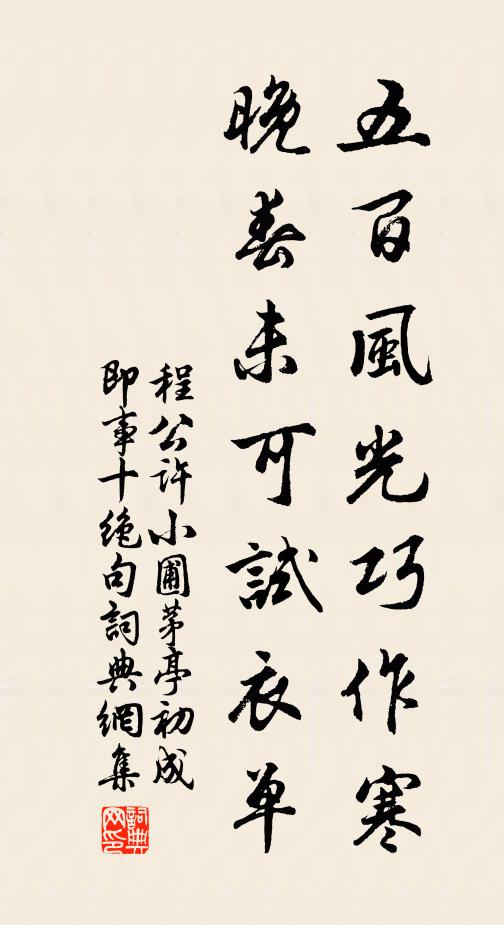 五百風光巧作寒
晚春未可試衣單
程公許小圃茅亭初成
即事十絕句詞典網集
詞典網印